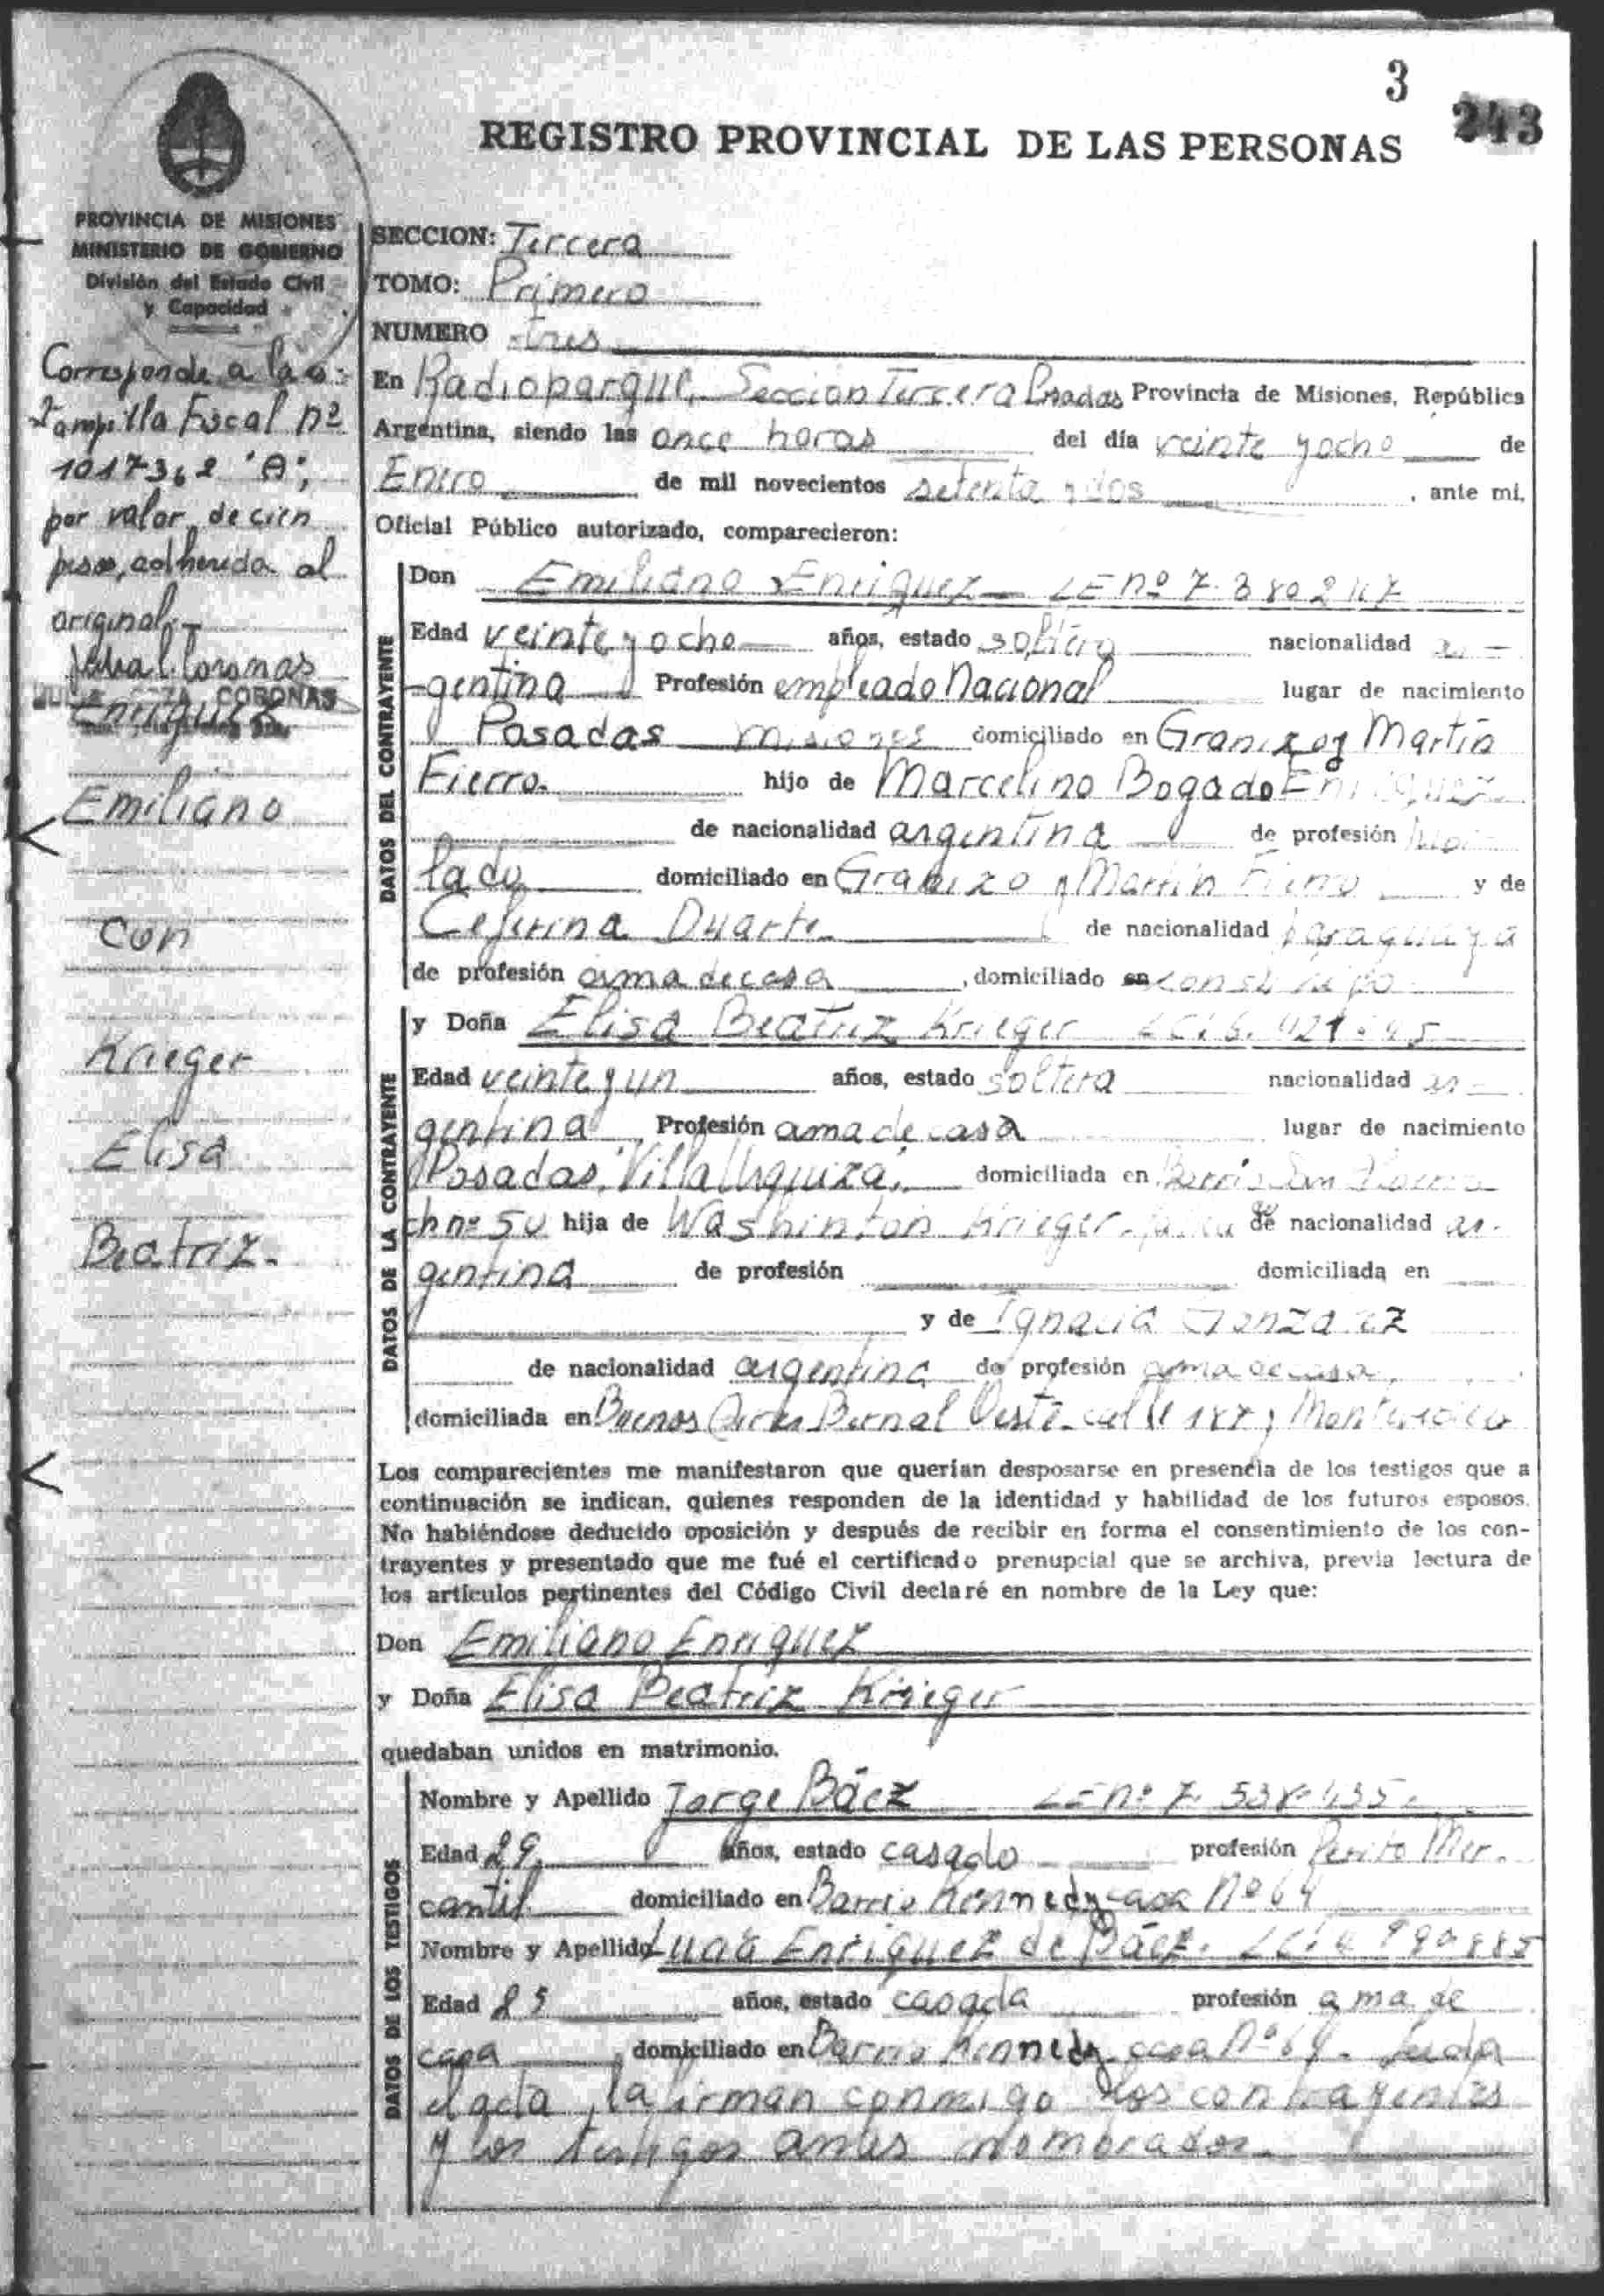 3
243
REGISTRO PROVINCIAL DE LAS PERSONAS
PROVINCIA DE MISIONES
MINISTERIO DE GOBIERNO
División del Estado Civil
y Capacidad
Corresponde a la
Estampilla Fiscal nº
1017362 "A";
por valor de cien
pesos, adherida al
original.-
CORONAS
Enriquez
Emiliano
con
Krieger
Elisa
Beatriz.
SECCION: Tercera
TOMO: Primero
NUMERO tres
En Radioparque, Sección Tercera Posadas Provincia de Misiones, República
Argentina, siendo las once horas del día veinte y ocho de
Enero de mil novecientos setenta y dos, ante mi,
Oficial Público autorizado, comparecieron:
DATOS DEL CONTRAYENTE
Don Emiliano Enriquez - LE nº 7.380247
Edad veinte y ocho años, estado soltero nacionalidad ar-
gentina Profesión empleado Nacional lugar de nacimiento
Posadas Misiones domiciliado en Granizo y Martín
Fierro. hijo de Marcelino Bogado Enriquez
de nacionalidad argentina de profesión
lado domiciliado en Granizo y Martín Fierro y de
Ceferina Duarte de nacionalidad paraguaya
de profesión ama de casa, domiciliado en
DATOS DE LA CONTRAYENTE
y Doña Elisa Beatriz Krieger
Edad veinte y un años, estado soltera nacionalidad ar-
gentina Profesión ama de casa lugar de nacimiento
Posadas, Villa Urquiza, domiciliada en Barrio San
ch nº 50 hija de Washinton Krieger de nacionalidad ar-
gentina de profesión domiciliada en
y de Ignacia Gonzalez
de nacionalidad argentina de profesión ama de casa,
domiciliada en Buenos Aires Bernal Oeste - calle 187 y Montevideo
Los comparecientes me manifestaron que querían desposarse en presencia de los testigos que a
continuación se indican, quienes responden de la identidad y habilidad de los futuros esposos.
No habiéndose deducido oposición y después de recibir en forma el consentimiento de los con-
trayentes y presentado que me fué el certificado prenupcial que se archiva, previa lectura de
los artículos pertinentes del Código Civil declaré en nombre de la Ley que:
Don Emiliano Enriquez
y Doña Elisa Beatriz Krieger
quedaban unidos en matrimonio.
DATOS DE LOS TESTIGOS
Nombre y Apellido Jorge Báez LE nº 7.538.435.
Edad 29 años, estado casado profesión Perito Mer-
cantil. domiciliado en Barrio Kennedy casa Nº 64
Nombre y Apellido Enriquez de Báez.
Edad 25 años, estado casada profesión ama de
casa domiciliado en Barrio Kennedy casa Nº 64. Leida
el acta, la firman conmigo los contrayentes
y los testigos antes nombrados.